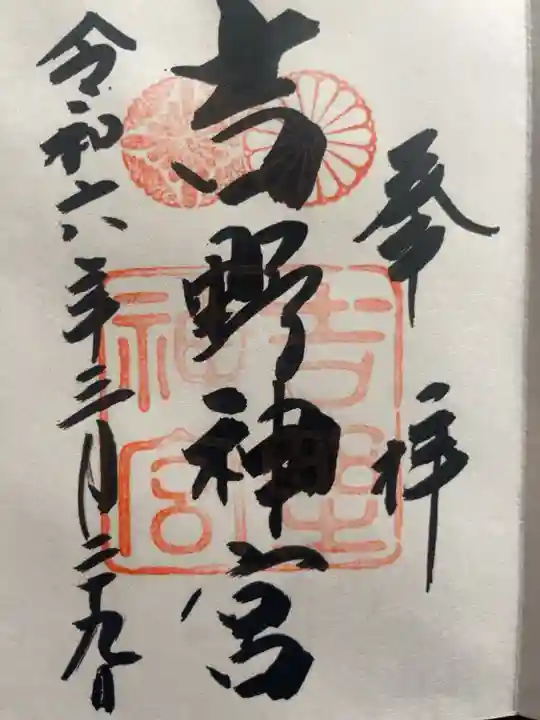 奉拝
吉野神宮
吉野神宮
令和六年三月二十九日